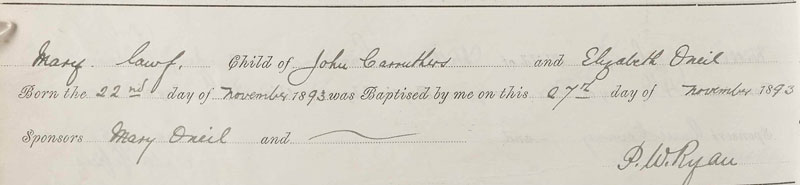 Mary. lawf. Child of John Carruthers and Elizabeth Oneil
Born the 22nd day of November 1893 was Baptised by me on this 27th day of November 1893
Sponsors Mary Oneil and
P. W. Ryan